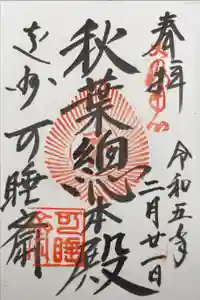 奉拝
令和五年
二月廿一日
秋葉總本殿
遠州
可睡齋